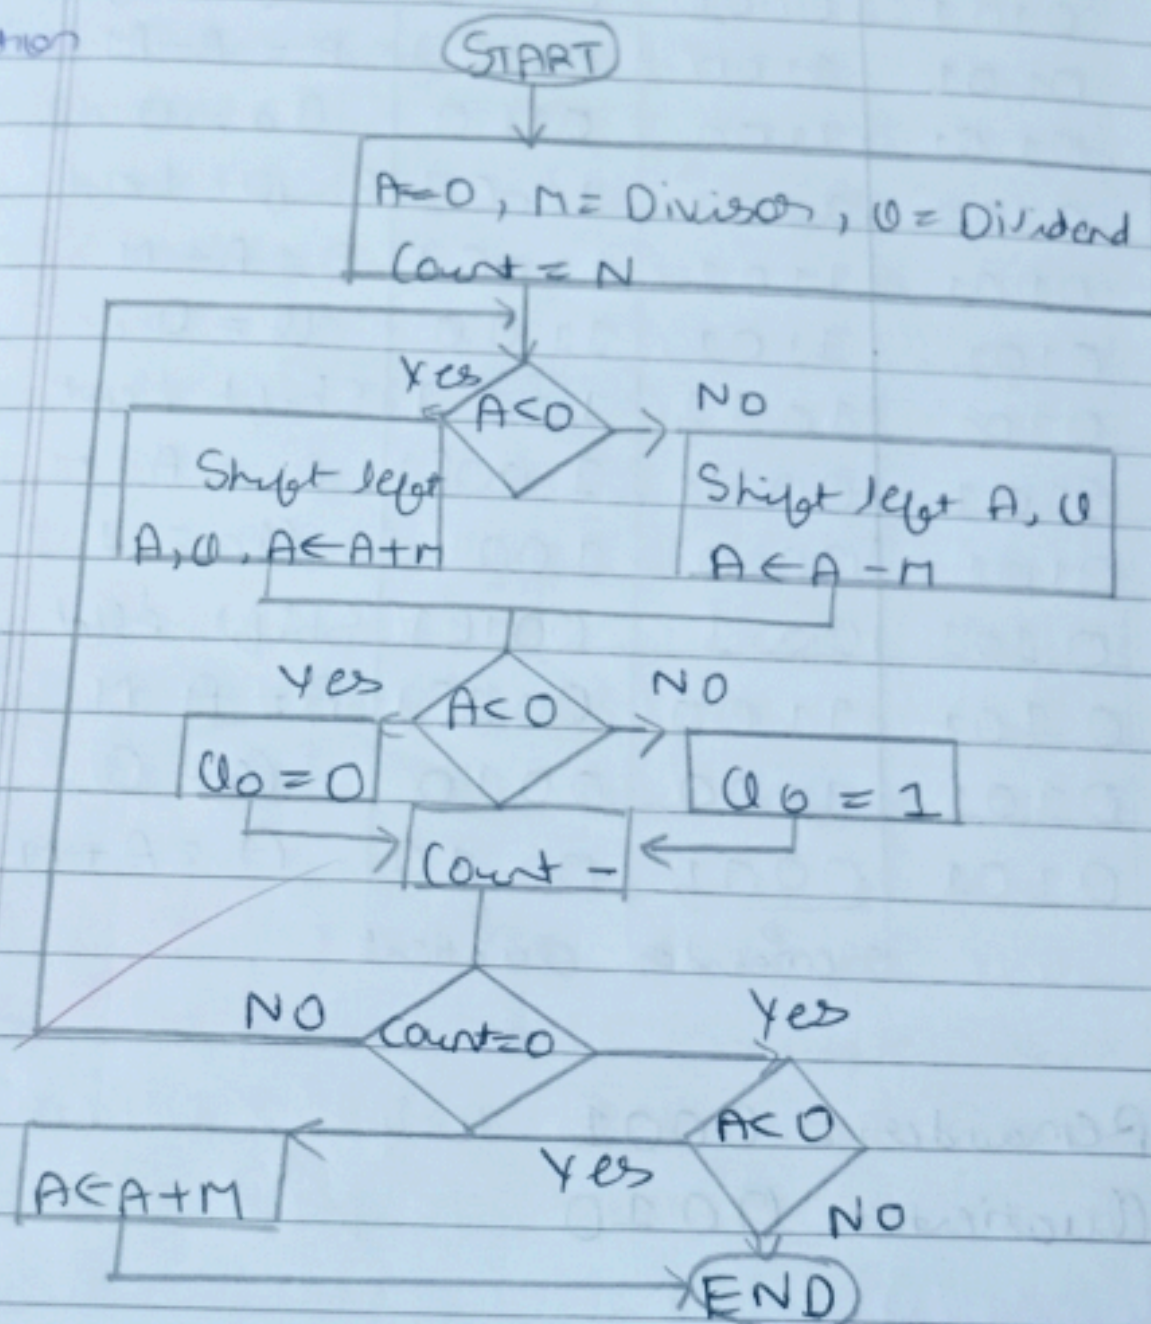 START
A=0, M= Divisor, Q= Dividend
Count = N
Yes
A<0
NO
Shift left
A, Q, A←A+M
Shift left A, Q
A←A-M
Yes
A<0
NO
Q0=0
Q0=1
Count -
NO
Count=0
Yes
A<0
Yes
A←A+M
NO
END